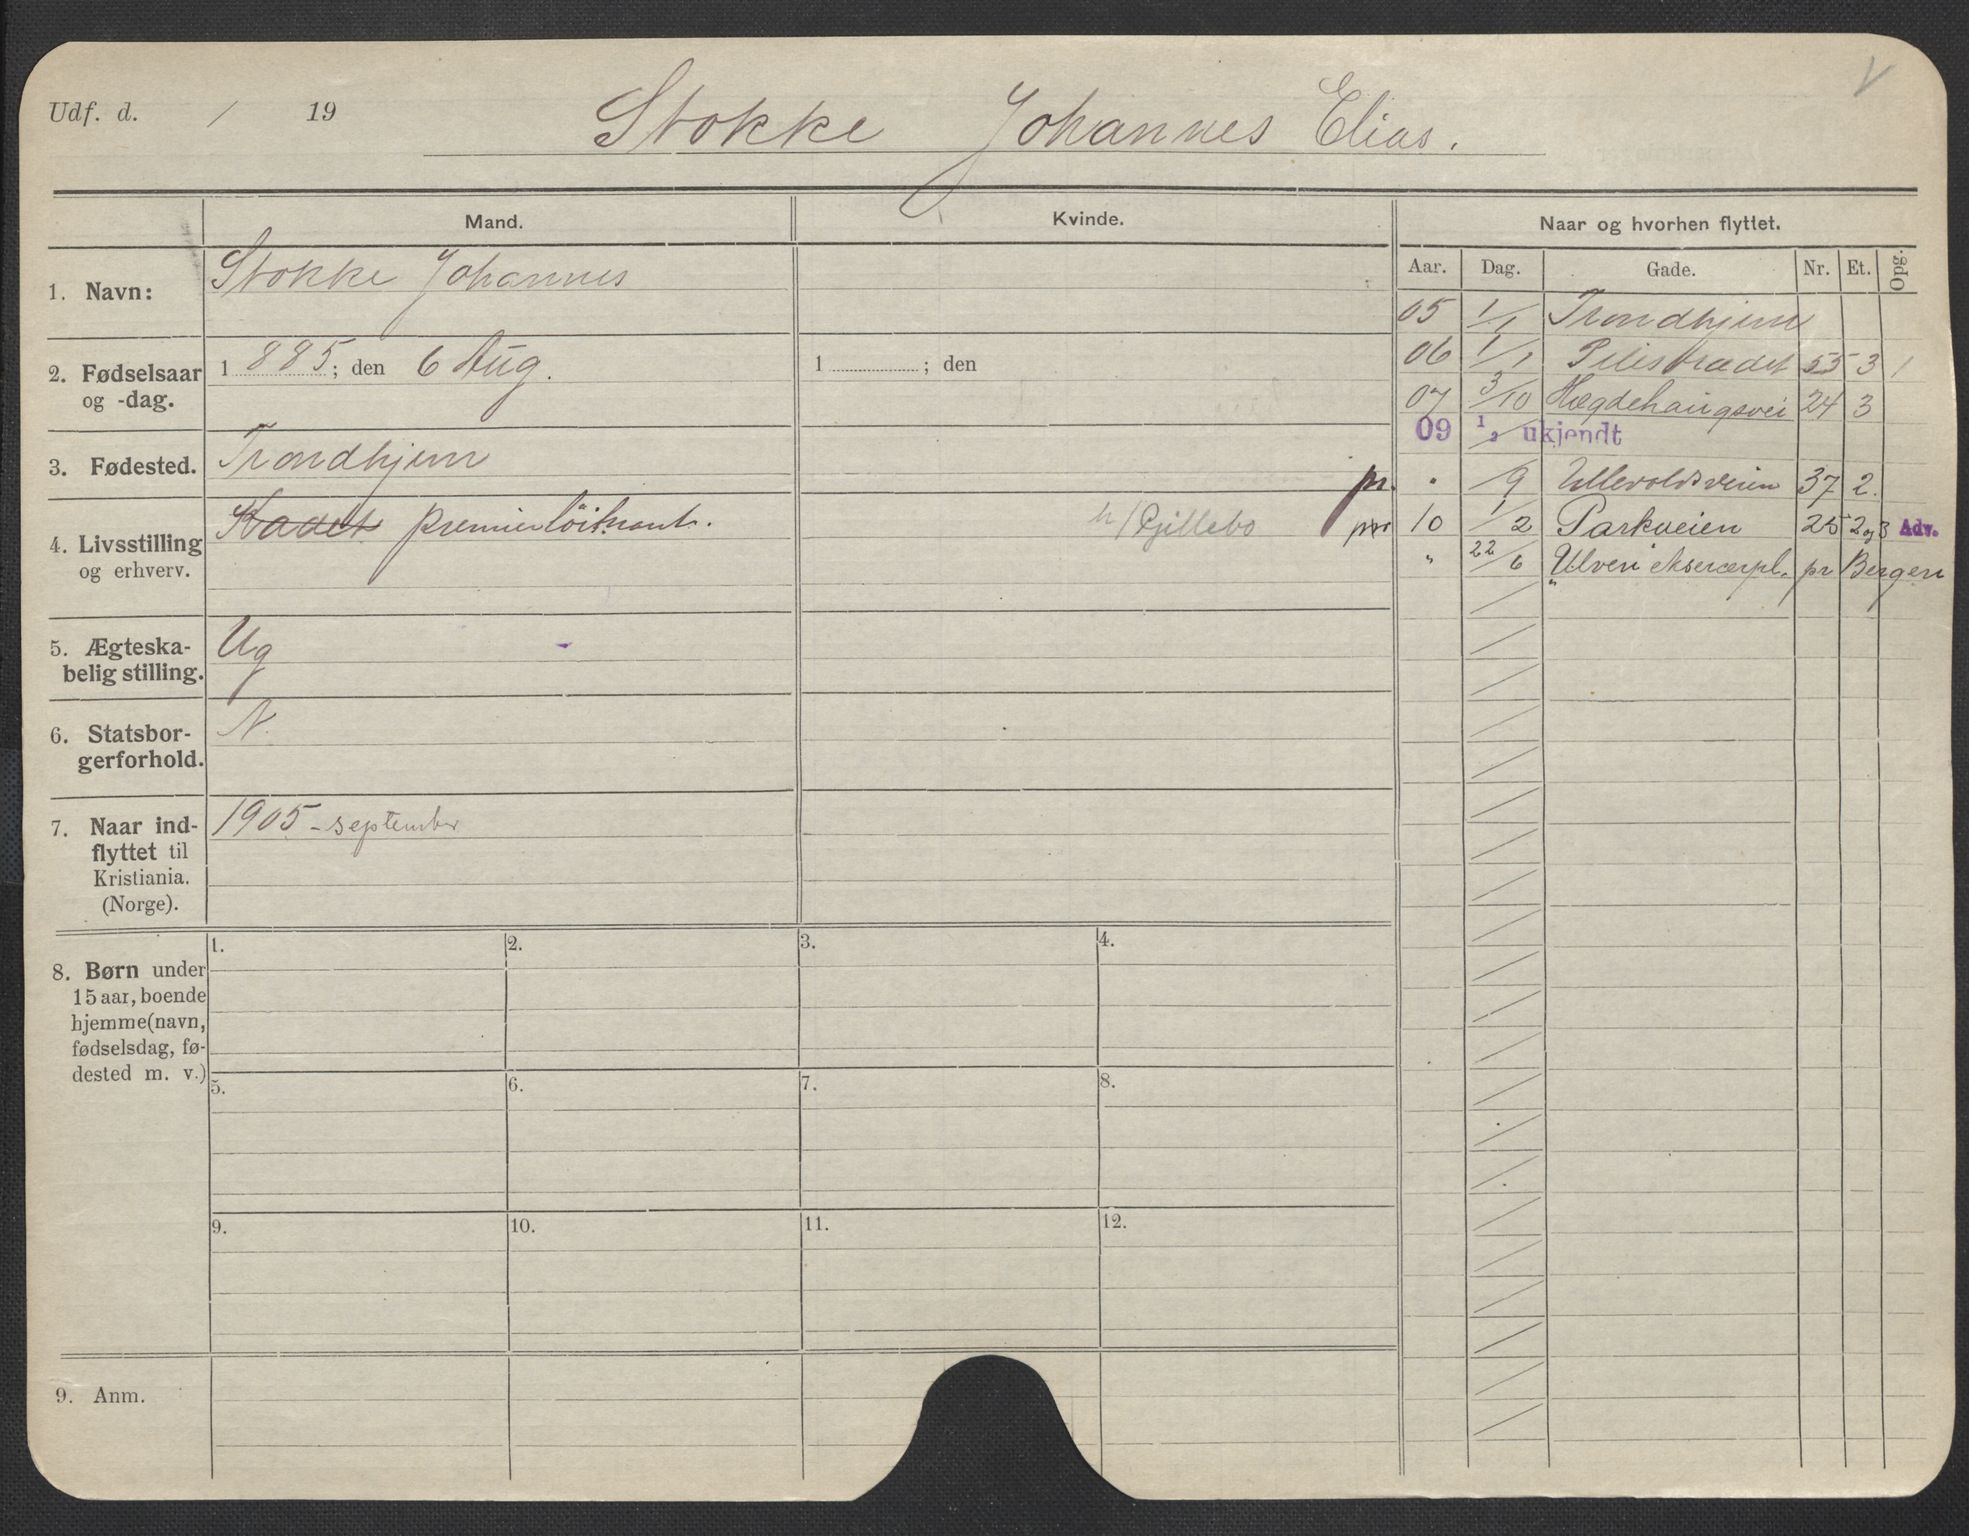 Udf. d. / 19 Stokke Johannes Elias.
Mand. Kvinde. Naar og hvorhen flyttet.
Aar. Dag. Gade. Nr. Et. Opg.
1. Navn: Stokke Johannes
05 1/1 Trondhjem
2. Fødselsaar og -dag. 1 885; den 6 Aug. 1 ; den
06 1/1 Pilestrædet 55 3 1
07 3/10 Hægdehaugsvei 24 3
09 1/2 ukjendt
3. Fødested. Trondhjem
pr. " /9 Ullevoldsveien 37 2.
4. Livsstilling og erhverv. Kadet premierløitnant. h/Gjillebo
pr 10 1/2 Parkveien 25 2 og 3 Adv.
" 22/6 Ulven ekserserpl. pr Bergen
5. Ægteska-
belig stilling. Ug
6. Statsbor-
gerforhold. N.
7. Naar ind-
flyttet til
Kristiania.
(Norge). 1905 - september
8. Børn under
15 aar, boende
hjemme (navn,
fødselsdag, fø-
dested m. v.)
1. 2. 3. 4.
5. 6. 7. 8.
9. 10. 11. 12.
9. Anm.